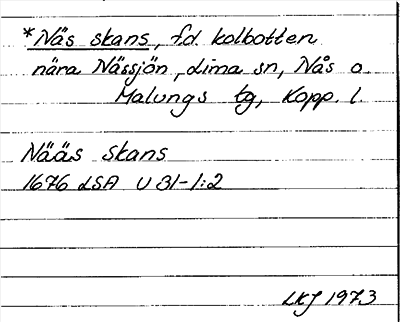 *Näs skans, f.d. kolbotten
nära Nässjön, Lima sn, Nås o.
Malungs tg, Kopp. l.
Nääs skans
1676 LSA U 31-1:2
LKJ 1973